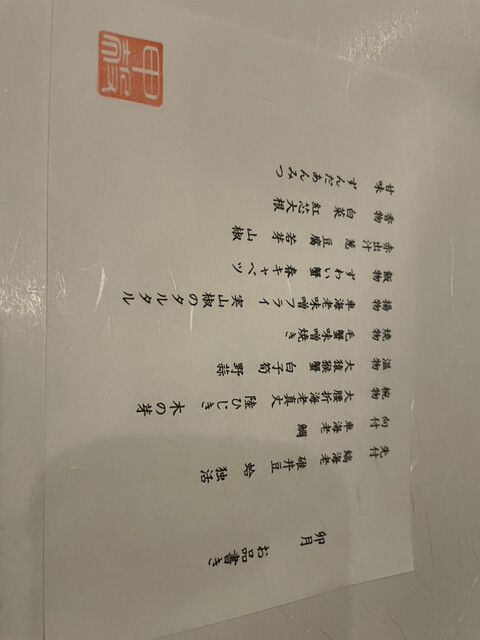 卯月 お品書き
先付 縞海老 碓井豆 蛤 独活
向付 車海老 鯛
椀物 大腰折海老真丈 陸ひじき 木の芽
温物 大猿猴蟹 白子筍 野蒜
焼物 毛蟹味噌焼き
揚物 車海老味噌フライ 実山椒のタルタル
飯物 ずわい蟹 春キャベツ
赤出汁 葱 豆腐 若芽 山椒
香物 白菜 紅芯大根
甘味 ずんだあんみつ
甲殻